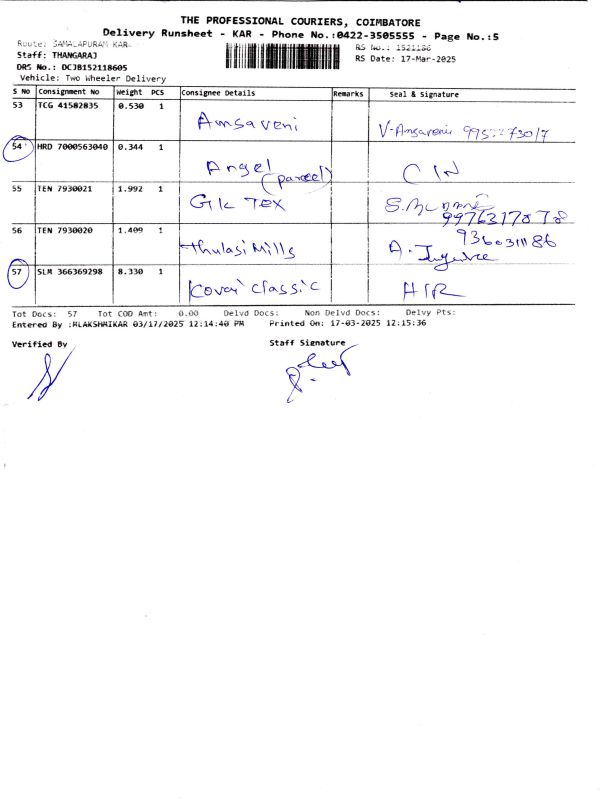 THE PROFESSIONAL COURIERS, COIMBATORE
Delivery Runsheet - KAR - Phone No.:0422-3505555 - Page No.:5
Route: SAMALAPURAM KAR
Staff: THANGARAJ
DRS No.: DCJB152118605
Vehicle: Two Wheeler Delivery
RS No.: 1521186
RS Date: 17-Mar-2025
S No Consignment No Weight PCS Consignee Details Remarks Seal & Signature
53 TCG 41582835 0.530 1 Amsaveni V-Amsaveni
54 HRD 7000563040 0.344 1 Angel (parcel) CIN
55 TEN 7930021 1.992 1 Gk Tex 9976317878
56 TEN 7930020 1.409 1 Thulasi Mills 9360311186 A.
57 SLM 366369298 8.330 1 Kovai classic HIR
Tot Docs: 57 Tot COD Amt: 0.00 Delvd Docs: Non Delvd Docs: Delvy Pts:
Entered By :MLAKSHMIKAR 03/17/2025 12:14:40 PM Printed On: 17-03-2025 12:15:36
Verified By Staff Signature